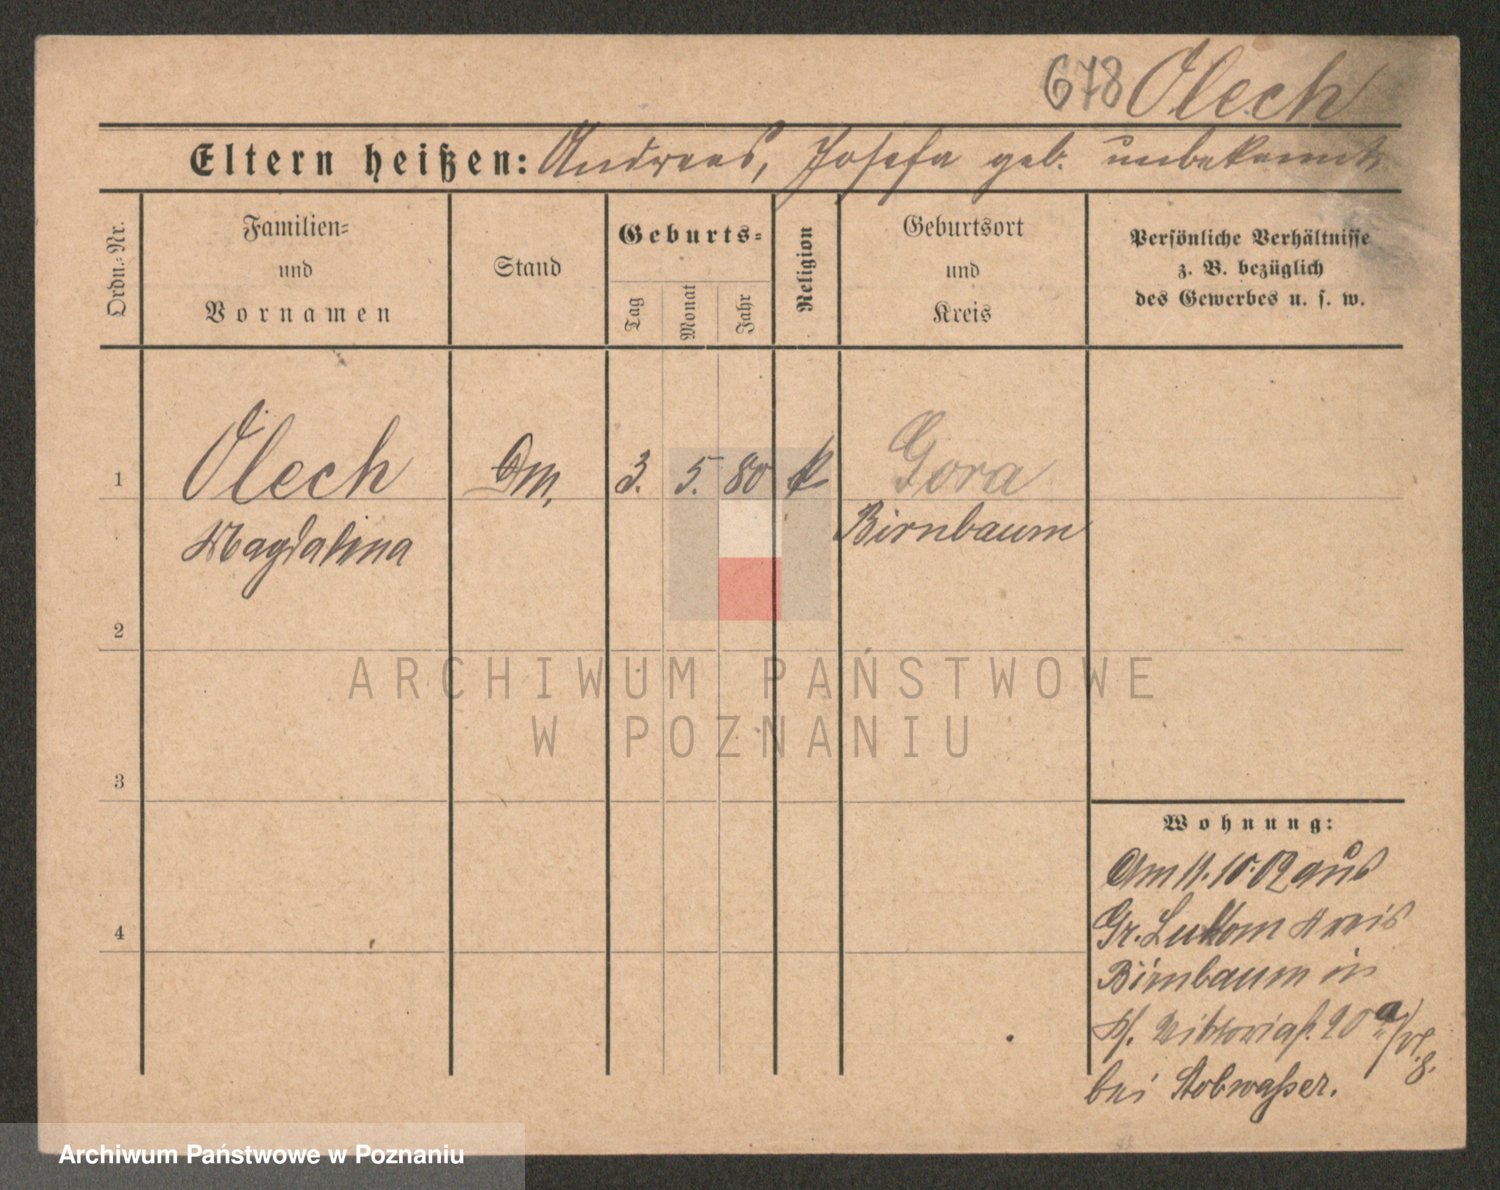 678 Olech
Eltern heißen: Andreas, Josefa geb. unbekannt
Ordn.-Nr.
Familien-
und
Vornamen
Stand
Geburts-
Tag
Monat
Jahr
Religion
Geburtsort
und
Kreis
Persönliche Verhältnisse
z. B. bezüglich
des Gewerbes u. s. w.
1 Olech Dm, 3. 5. 80 k Gora
Magdalena Birnbaum
2
3
4
Wohnung:
Am 11.10.02 aus
Gr. Lukom Kreis
Birnbaum in
Viktoriast. 20 a
bei Stobwaßer.
ARCHIWUM PAŃSTWOWE
W POZNANIU
Archiwum Państwowe w Poznaniu